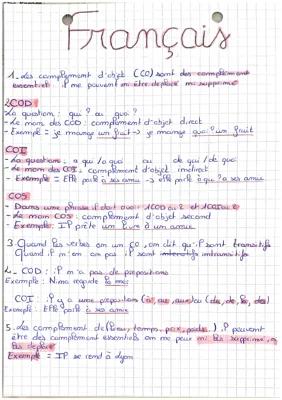 Français
1. Les complément d'objet (CO) sont des complément
essentiel : il ne peuvent ni être déplacé ni supprimé
2. COD
La question : qui ? ou quoi ?
- Le nom des COD : complément d'objet direct
- Exemple = je mange un fruit → je mange quoi ? un fruit
COI
- La question : a qui / a quoi ou de qui / de quoi
- Le nom des COI : complément d'objet indirect
- Exemple = Elle parle à ses amie → elle parle à qui ? a ses amie
COS
- Dans une phrase il doit avoir : 1 COD ou 2 et 1 COI ou 2
- Le nom COS : complément d'objet second
- Exemple : Il prête un livre à un amie
3. Quand les verbes on un CO, on dit qu'il sont transitifs
Quand il n'en on pas il sont intransitifs
4. COD : il n'a pas de prépositions
Exemple : Nima regarde la mer
COI : il y a une prépositions (à, au, aux) ou (du, de, la, des)
Exemple : Elle parle à ses amie
5. Les complément de (lieu, temps, poix, poids..) il peuvent
être des complément essentiels on ne peux ni les supprimé, ni
les déplacé
Exemple = Il se rend à Lyon